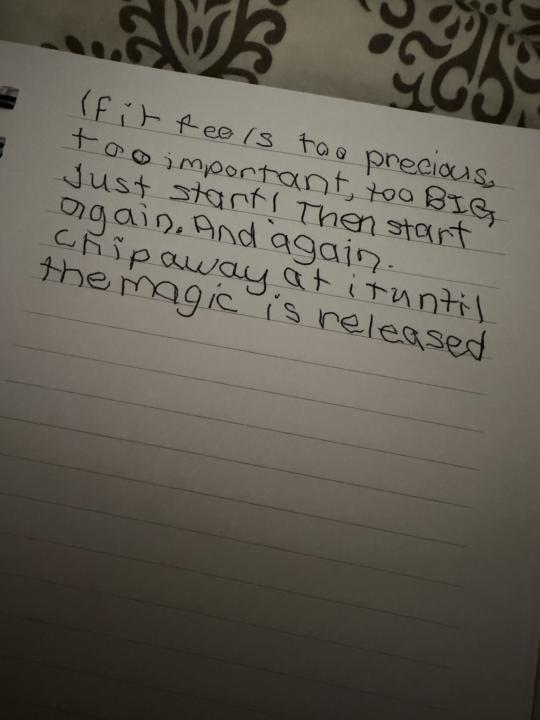 If it feels too precious,
too important, too BIG,
Just start! Then start
again. And again.
chip away at it until
the magic is released